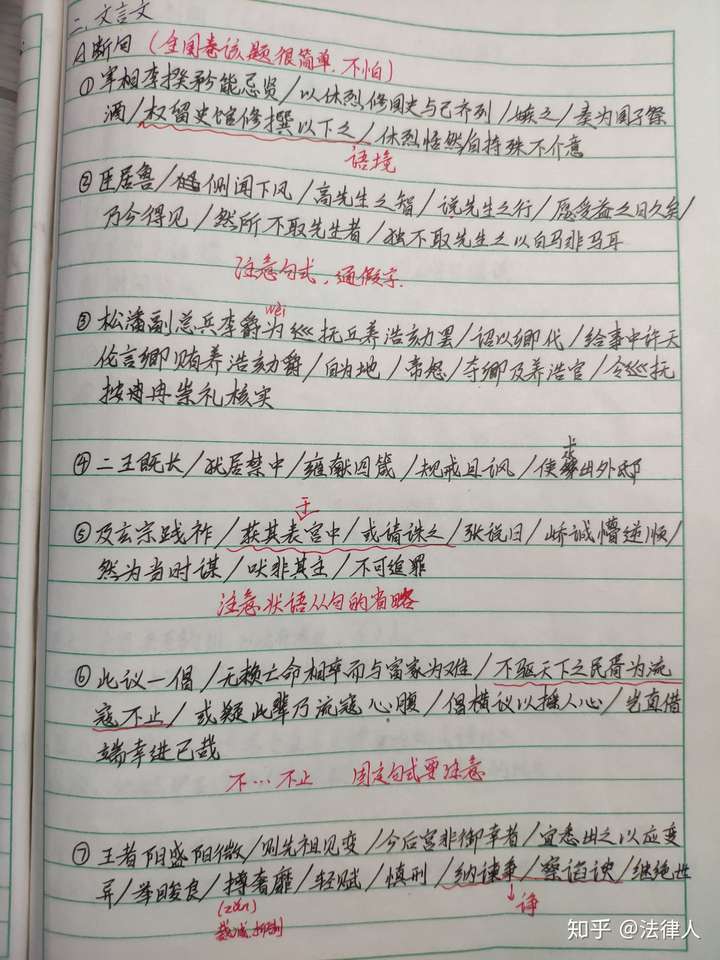 二、文言文
A.断句（全国卷该题很简单,不怕）
①宰相李揆矜能忌贤/以休烈修国史与己齐列/嫉之/奏为国子祭
酒/权留史馆修撰以下之/休烈恬然自持殊不介意
语境
②臣居鲁/侧闻下风/高先生之智/说先生之行/愿受益之日久矣/
乃今得见/然所不取先生者/独不取先生之以白马非马耳
注意句式,通假字.
wèi
③松潘副总兵李爵为巡抚丘养浩劾罢/诏以卿代/给事中许天
伦言卿贿养浩劾爵/自为地/帝怒/夺卿及养浩官/令巡抚
按冉崇礼核实
④二王既长/犹居禁中/雍献四箴/规戒且讽/俟出外邸
卜
于
⑤及玄宗践祚/获其表宫中/或请诛之/张说曰/峤诚懵逆顺/
然为当时谋/吠非其主/不可追罪
注意状语从句的省略
⑥此议一倡/无赖亡命相率而与富家为难/不驱天下之民胥为流
寇不止/或疑此辈乃流寇心腹/倡横议以摇人心/岂直借
端幸进已哉
不…不止 固定句式要注意
⑦王者阴盛阳微/则先祖见变/今后宫非御幸者/宜悉出之以应变
异/举畯良/撙奢靡/轻赋/慎刑/纳谏争/察谄谀/继绝世
(zǔn) 诤
裁减.抑制
知乎 @法律人